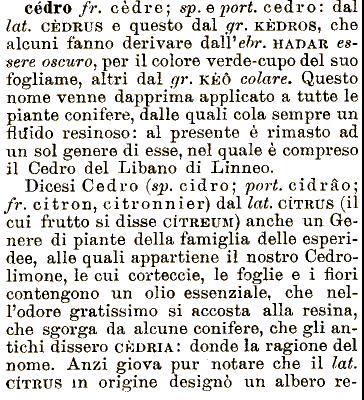 cédro fr. cèdre; sp. e port. cedro: dal
lat. CÈDRUS e questo dal gr. KÈDROS, che
alcuni fanno derivare dall'ebr. HADAR es-
sere oscuro, per il colore verde-cupo del suo
fogliame, altri dal gr. KÈÔ colare. Questo
nome venne dapprima applicato a tutte le
piante conifere, dalle quali cola sempre un
fluido resinoso: al presente è rimasto ad
un sol genere di esse, nel quale è compreso
il Cedro del Libano di Linneo.
Dicesi Cedro (sp. cidro; port. cidrâo;
fr. citron, citronnier) dal lat. CÍTRUS (il
cui frutto si disse CÍTREUM) anche un Ge-
nere di piante della famiglia delle esperi-
dee, alle quali appartiene il nostro Cedro-
limone, le cui corteccie, le foglie e i fiori
contengono un olio essenziale, che nel-
l'odore gratissimo si accosta alla resina,
che sgorga da alcune conifere, che gli an-
tichi dissero CÈDRIA: donde la ragione del
nome. Anzi giova pur notare che il lat.
CÍTRUS in origine designò un albero re-